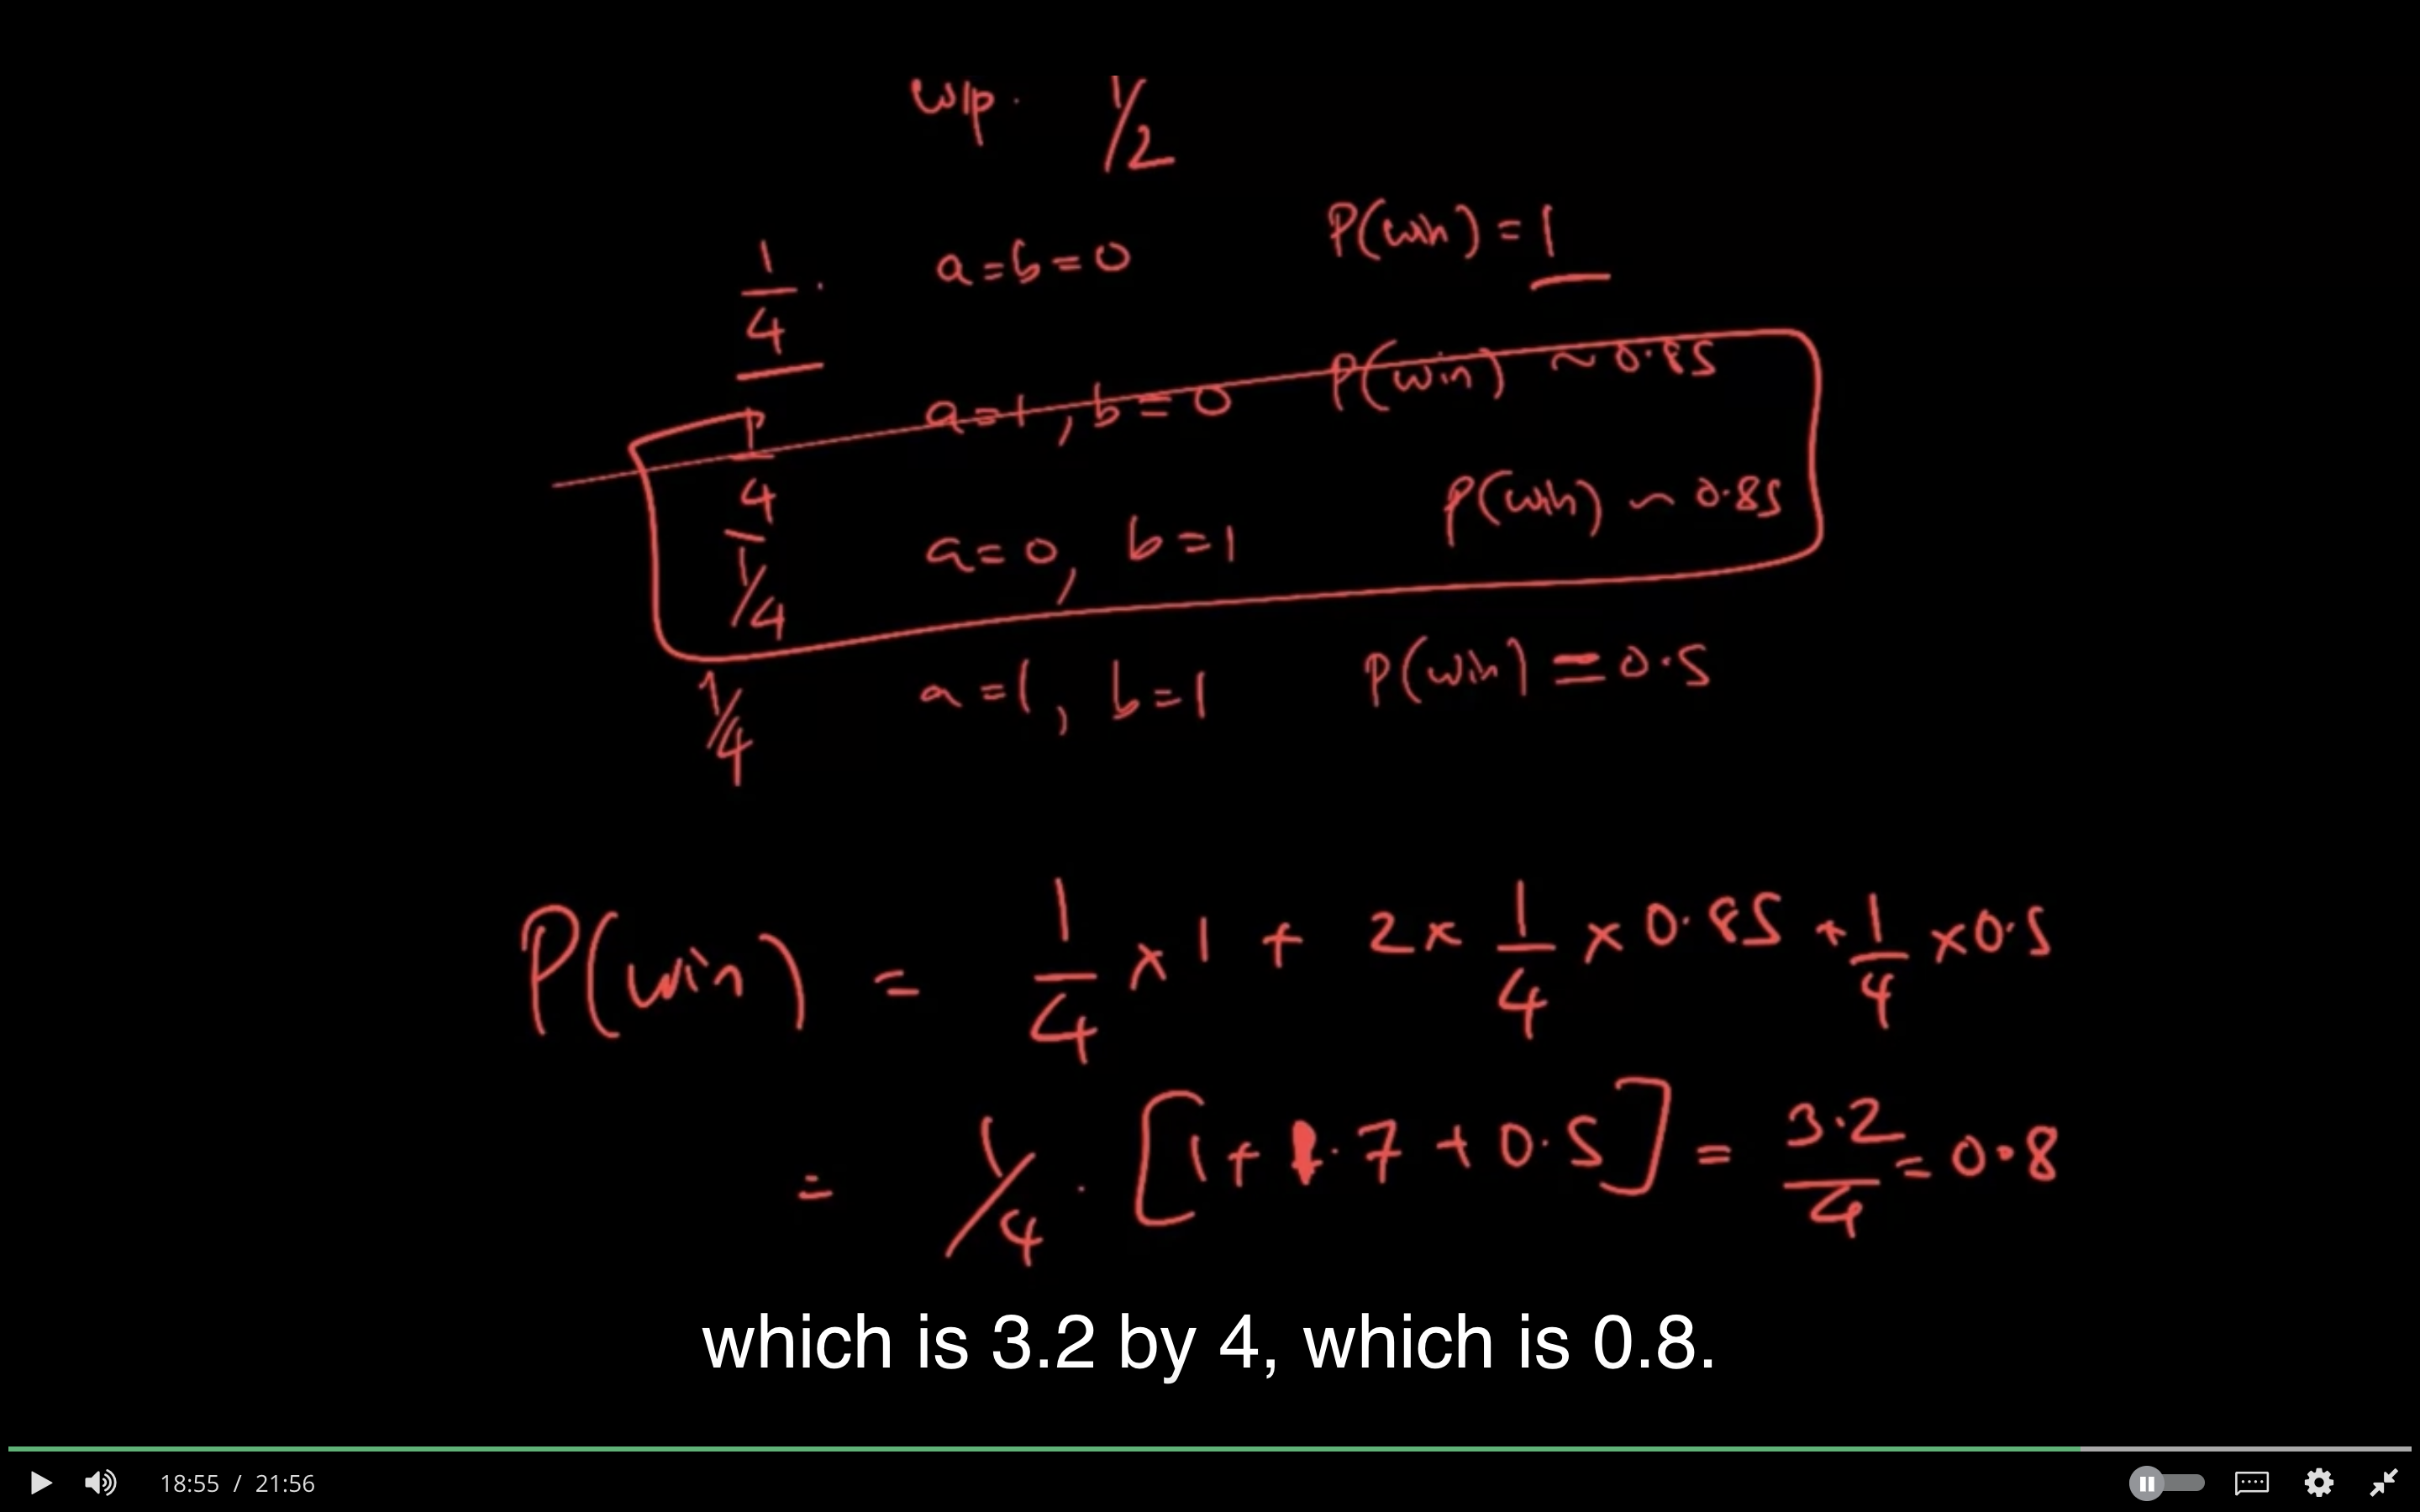 w/p. 1/2
1/4 . a=b=0 P(win) = 1
1/4 a=1, b=0 P(win) ~ 0.85
1/4 a=0, b=1 P(win) ~ 0.85
1/4 a=1, b=1 P(win) = 0.5
P(win) = 1/4 × 1 + 2 × 1/4 × 0.85 + 1/4 × 0.5
= 1/4 . [1 + 1.7 + 0.5] = 3.2/4 = 0.8
which is 3.2 by 4, which is 0.8.
18:55 / 21:56